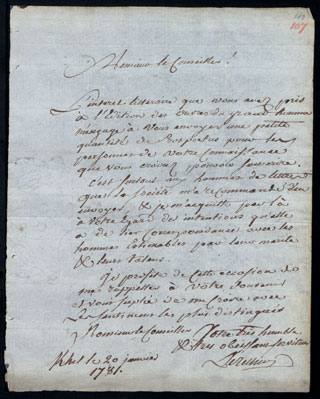 107
Monsieur le Conseiller!
L'interet litteraire que vous avez pris
à l'Edition des Œuvres du grand homme
m'engage à vous envoyer une petite
quantité de Prospectus pour les
personnes de votre connoissance
que vous croirez pouvoir souscrire.
C'est surtout aux hommes de lettres
que la Société m'a recommandé d'en
envoyer, & je m'acquitte par là
à votre égard des intentions qu'elle
a de lier correspondance avec les
hommes Estimables par leur merite
& leurs talens.
Je profite de cette occasion de
me rappeller à votre souvenir
et vous suplie de me croire avec
les sentimens les plus distingués
Monsieur le Conseiller
Votre très humble
& très obeissant serviteur
Kehl le 20 janvier
1781.